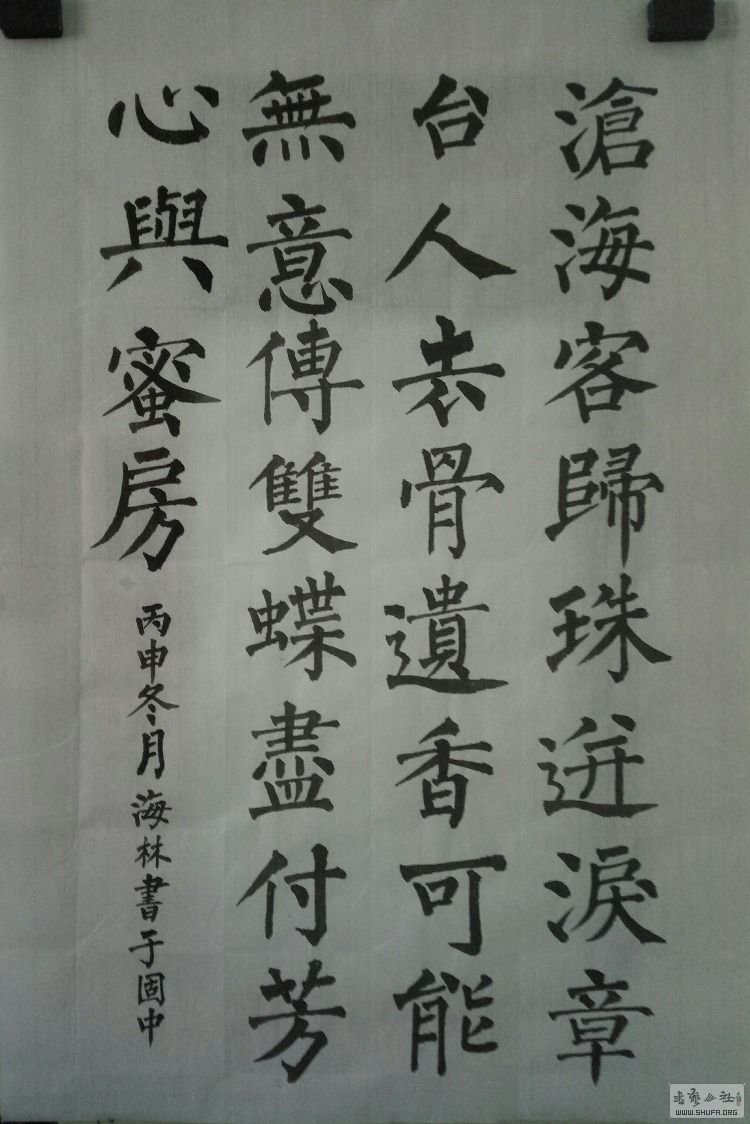 滄海客歸珠迸淚章
台人去骨遺香可能
無意傳雙蝶盡付芳
心與蜜房
丙申冬月海林書于固中
書藝公社
WWW.SHUFA.ORG